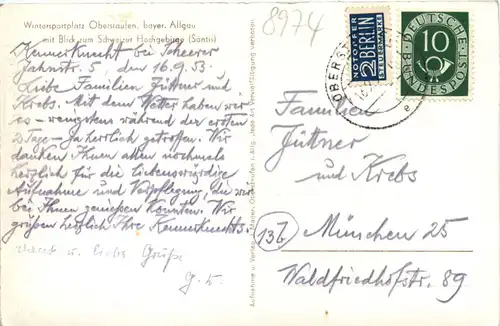 Wintersportplatz Oberstaufen, bayer. Allgäu
mit Blick zum Schweizer Hochgebirge (Säntis)
8974
Kennerknecht bei Scheerer
Jahnstr. 5, den 16.9.53.
Liebe Familien Jüttner und
Krebs. Mit dem Wetter haben wir
es - wenigstens während der ersten
2 Tage - ja herrlich getroffen. Wir
danken Ihnen allen nochmals
herzlich für die liebenswürdige
Aufnahme und Verpflegung, die wir
bei Ihnen genießen konnten. Wir
grüßen herzlich Ihre Kennerknechts.
u. liebe Grüße
NOTOPFER
2 BERLIN
STEUERMARKE
DEUTSCHE
10
BUNDESPOST
Familien
Jüttner
und Krebs
13b
München 25
Waldfriedhofstr. 89